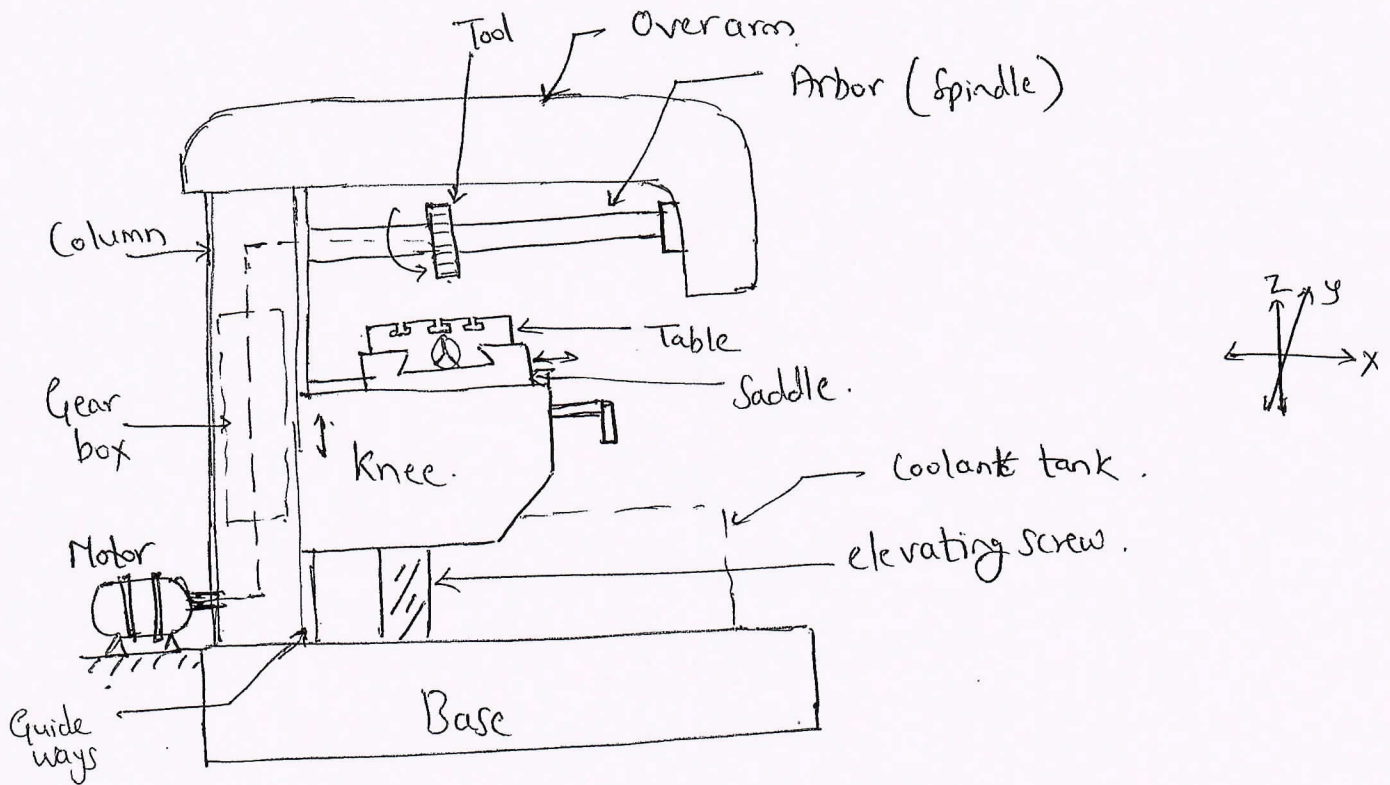 Tool
Over arm
Arbor (Spindle)
Column
Table
Saddle.
Gear
box
Knee.
Coolant tank.
Motor
elevating screw.
Guide
ways
Base
Z
y
X